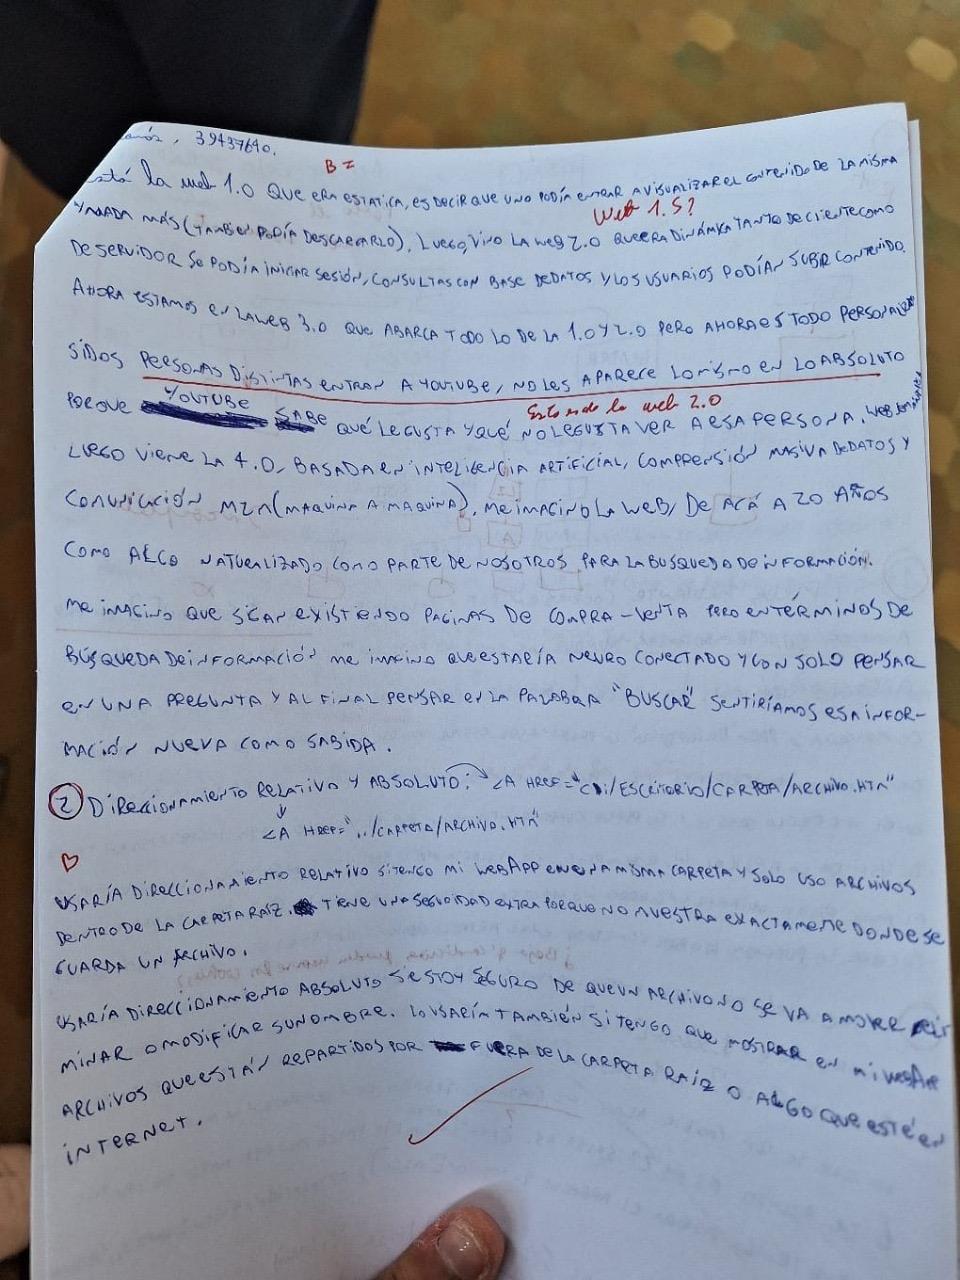 39437640.
B-
la web 1.0 QUE ERA ESTATICA, ES DECIR QUE UNO PODÍA ENTRAR A VISUALIZAR EL CONTENIDO DE LA MISMA
Y NADA MÁS (TAMBIEN PODÍA DESCARGARLO). LUEGO, VINO LA WEB 2.0 QUE ERA DINÁMICA TANTO DE CLIENTE COMO
Web 1.5?
DE SERVIDOR SE PODÍA INICIAR SESIÓN, CONSULTAS CON BASE DE DATOS Y LOS USUARIOS PODÍAN SUBIR CONTENIDO.
AHORA ESTAMOS EN LA WEB 3.0 QUE ABARCA TODO LO DE LA 1.0 Y 2.0 PERO AHORA ES TODO
SI DOS PERSONAS DISTINTAS ENTRAN A YOUTUBE, NO LES APARECE LO MISMO EN LO ABSOLUTO
PORQUE YOUTUBE SABE QUÉ LE GUSTA Y QUÉ NO LE GUSTA VER A ESA PERSONA.
Esto es de la web 2.0
LUEGO VIENE LA 4.0, BASADA EN INTELIGENCIA ARTIFICIAL, COMPRENSIÓN MASIVA DE DATOS Y
COMUNICACIÓN M2M (MAQUINA A MAQUINA). ME IMAGINO LA WEB, DE ACÁ A 20 AÑOS
COMO ALGO NATURALIZADO COMO PARTE DE NOSOTROS PARA LA BUSQUEDA DE INFORMACIÓN.
ME IMAGINO QUE SIGAN EXISTIENDO PAGINAS DE COMPRA-VENTA PERO EN TÉRMINOS DE
BÚSQUEDA DE INFORMACIÓN ME IMAGINO QUE ESTARÍA NEURO CONECTADO Y CON SOLO PENSAR
EN UNA PREGUNTA Y AL FINAL PENSAR EN LA PALABRA "BUSCAR" SENTIRÍAMOS ESA INFOR-
MACIÓN NUEVA COMO SABIDA.
2 DIRECCIONAMIENTO RELATIVO Y ABSOLUTO: <A HREF="C:/ESCRITORIO/CARPETA/ARCHIVO.HTM"
<A HREF="../CARPETA/ARCHIVO.HTM"
B
USARÍA DIRECCIONAMIENTO RELATIVO SI TENGO MI WEBAPP EN UNA MISMA CARPETA Y SOLO USO ARCHIVOS
DENTRO DE LA CARPETA RAÍZ. TIENE UNA SEGURIDAD EXTRA PORQUE NO MUESTRA EXACTAMENTE DONDE SE
GUARDA UN ARCHIVO.
USARÍA DIRECCIONAMIENTO ABSOLUTO SI ESTOY SEGURO DE QUE UN ARCHIVO NO SE VA A MOVER
MINAR O MODIFICAR SU NOMBRE. LO USARÍA TAMBIÉN SI TENGO QUE MOSTRAR EN MI WEBAPP
ARCHIVOS QUE ESTÁN REPARTIDOS POR FUERA DE LA CARPETA RAÍZ O ALGO QUE ESTÉ EN
INTERNET.